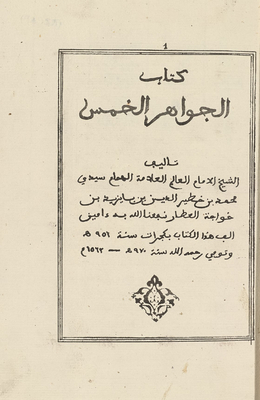 1
كتاب
الجواهر الخمس
تأليف
الشيخ الإمام العالم العلامة الهمام سيدي
محمد بن خطير الدين بن بايزيد بن
خواجة العطار نفعنا الله به ءامين
ألف هذا الكتاب بكجرات سنة ٩٥٦ هـ
وتوفي رحمه الله سنة ٩٧٠ هـ — ١٥٦٢م